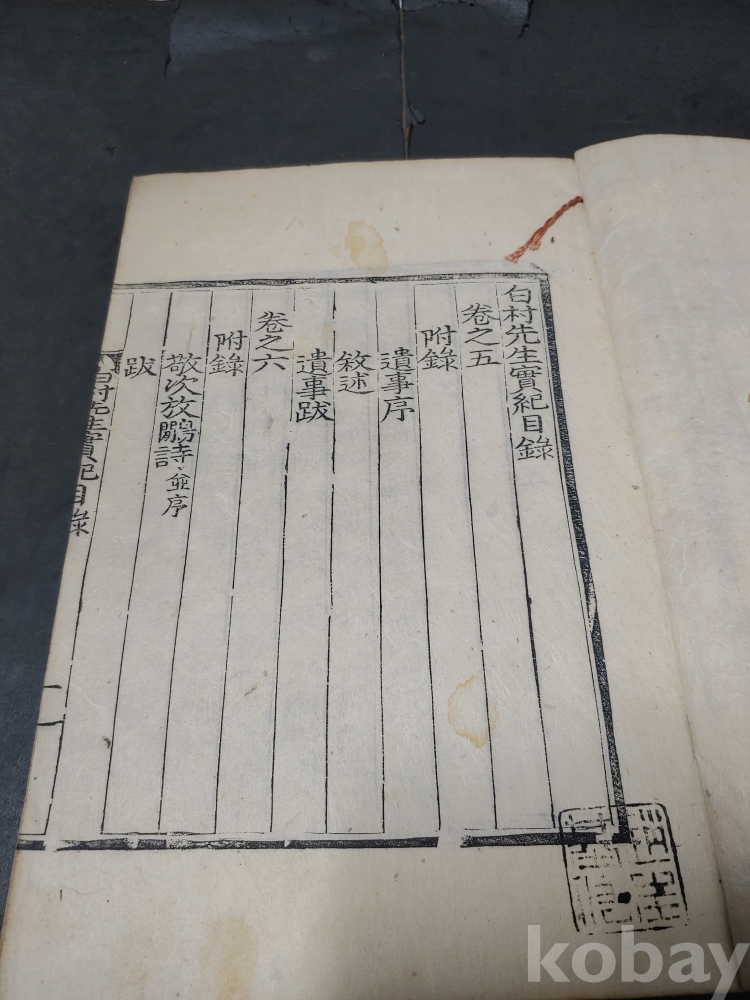 白村先生實紀目錄
卷之五
附錄
遺事序
敘述
遺事跋
卷之六
附錄
敬次放鷳詩並序
跋
白村先生實紀目錄
二
kobay